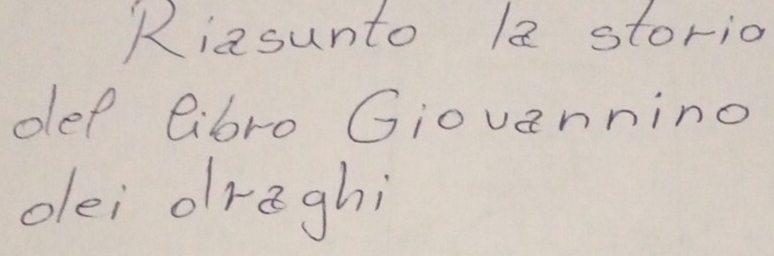 Riasunto la storia
del libro Giovannino
dei draghi